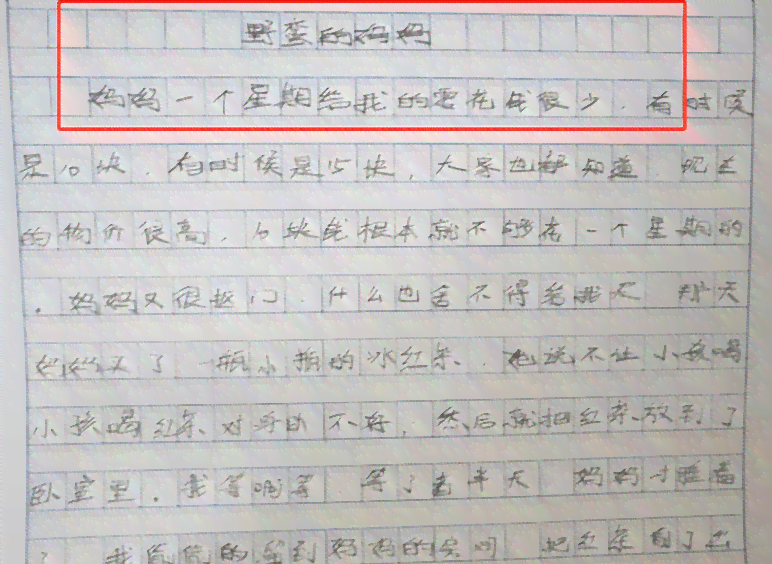 野蛮的妈妈
妈妈一个星期给我的零花钱很少．有时候
是10块．有时候是15块，大家也都知道．现在
的物价很高．10块钱根本就不够花一个星期的
．妈妈又很抠门．什么也舍不得给我买 那天
妈妈买了一瓶小瓶的冰红茶．她说不让小孩喝
小孩喝红茶对身体不好，然后就把红茶放到了
卧室里．我等呀等 等了老半天 妈妈才睡着
了 我偷偷的 到妈妈的房间 把红茶 了出